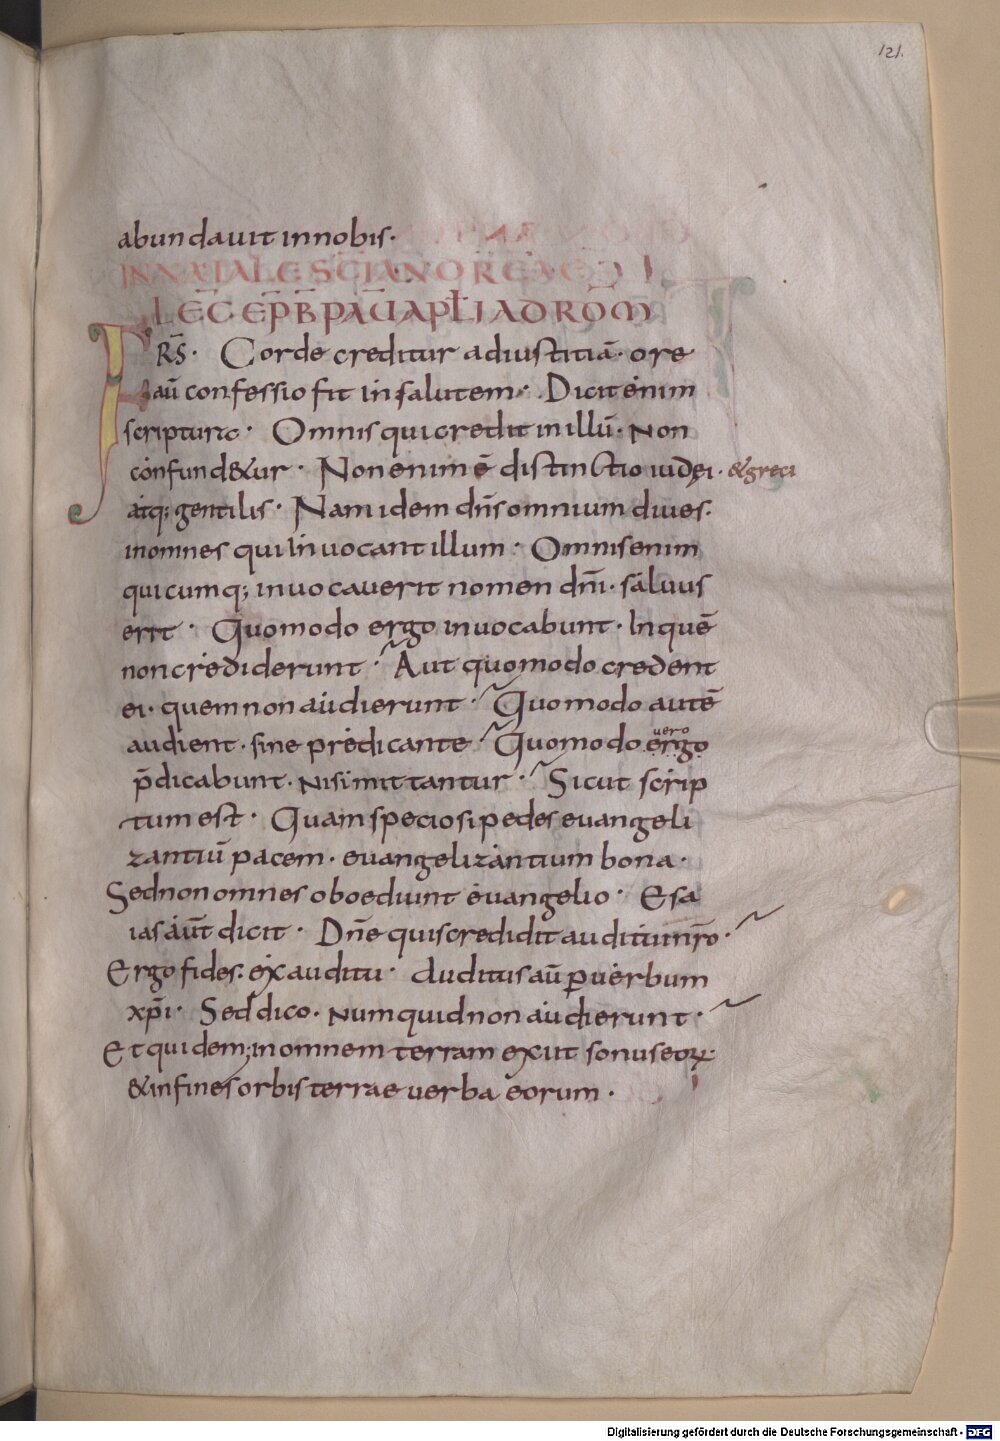 121.
abundavit in nobis·
IN NATALE SCI ANDREAE
LEC EPB PAU APLI AD ROM
FRS· Corde creditur ad iustitiā· ore
aū confessio fit in salutem· Dicit enim
scriptura· Omnis qui credit in illū· Non
confund&ur· Non enim ē distinctio iudęi· &greci
atq; gentilis· Nam idem dn̄s omnium dives·
in omnes qui invocant illum· Omnis enim
quicumq; invocaverit nomen dn̄i· salvus
erit· Quomodo ergo invocabunt· In quē
non crediderunt· Aut quomodo credent
ei· quem non audierunt· Quomodo autē
audient· sine predicante· Quomodo ergo uero
p̄dicabunt· Nisi mittantur· Sicut scrip
tum est· Quam speciosi pedes evangeli
zantiū pacem· evangelizantium bona·
Sed non omnes oboediunt evangelio· Esa
ias aūt dicit· Dn̄e quis credidit auditui nr̄o·
Ergo fides· ex auditu· Auditus aū ꝑ verbum
xp̄i· Sed dico· Numquid non audierunt·
Et quidem; in omnem terram exiit sonus eoꝝ
&in fines orbis terrae verba eorum·
Digitalisierung gefördert durch die Deutsche Forschungsgemeinschaft - DFG